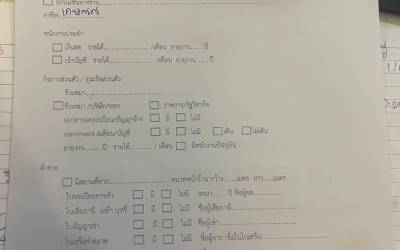 อาชีพ..เกษตรกร
พนักงานประจำ
☐ เงินสด รายได้......................./เดือน อายุงาน......ปี
☐ เข้าบัญชี รายได้......................./เดือน อายุงาน......ปี
กิจการส่วนตัว / ธุรกิจส่วนตัว
รับเหมา...................
☐รับเหมา /บริษัท/หจก ☐ ราชการ/รัฐวิสาหกิจ
เอกสารจดทะเบียน/สัญญาจ้าง ☐ มี ☐ ไม่มี
statement 6เดือน/บัญชี ☐ มี ☐ ไม่มี ☐เดิน ☐ไม่เดิน
อายุงาน.......ปี รายได้................/ เดือน ☐ มีหน้างานปัจจุบัน
ค้าขาย
☐ มีสถานที่ขาย...............................ขนาดหน้าร้าน กว้าง......เมตร ยาว......เมตร
- ใบทะเบียนการค้า ☐ มี ☐ ไม่มี จดมา......ปี ชื่อผู้จด....................
- ใบเสียภาษี เหล้า บุหรี่ ☐ มี ☐ ไม่มี ชื่อผู้เสียภาษี....................
- ใบสัญญาเช่า ☐ มี ☐ ไม่มี ชื่อผู้เช่า....................
- ใบเสร็จค่าตลาด ☐ มี ☐ ไม่มี ชื่อผู้จ่าย (ชื่อในใบเสร็จ)